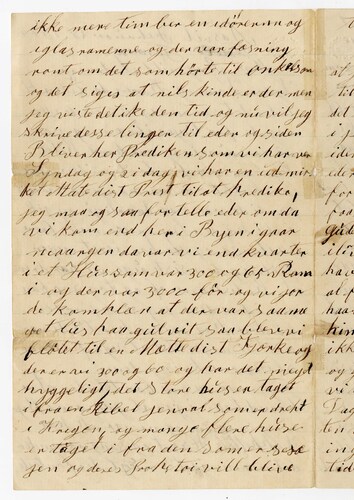 ikke mere timber en idörerne og
iglas ramerne og der var fosning
ront om det som hörte til onkelson
og det siges at nils kinde er der men
jeg viste det ike den tid og nu vil jeg
skrive desse linger til eder og siden
Bliver her Prædiken som vi har ver
Syndag og idag vi har en id mir
Metedist Prest til at Predike,
jeg maa og saa fortelle eder om da
vi kom end her i Byen igaar
da var vi end kvarter
i et Hus som var 300 og 65 Rom
i og der var 3000 för og vi jor
de komplæn at der var saa mo
get lus paa gulvit saa bleve vi
flötet til en Methedist Kjörke og
der er vi 300 og 60 og har det meget
hyggeligt det store hus er taget
ifra en Ribel jenral som er drekt
i Kregen og mange flere huse
er taget ifra den som er sese
jen og deres Prokstri vill blive